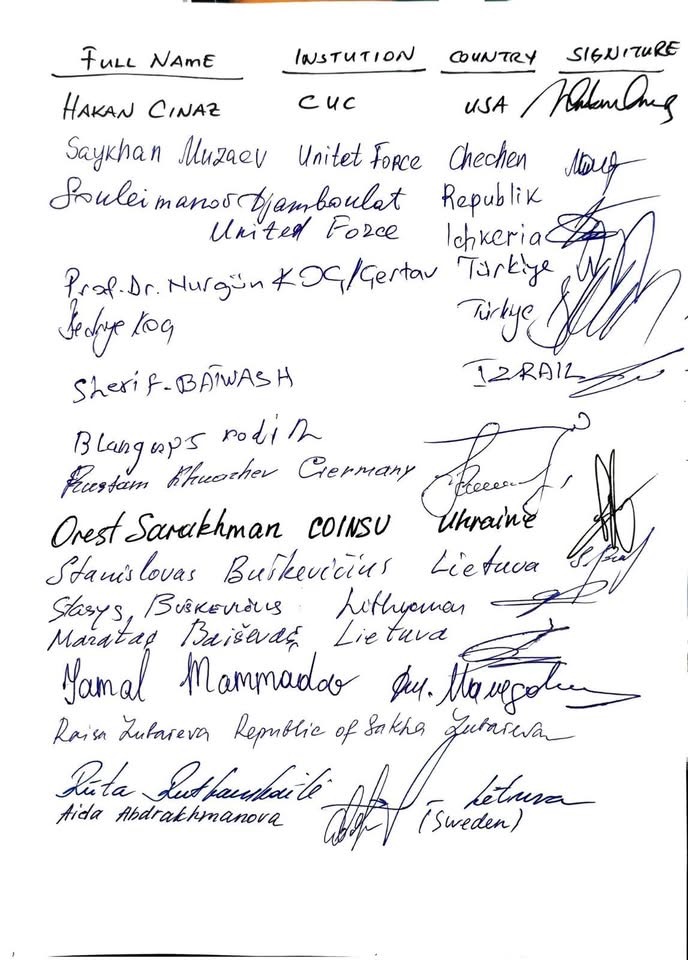 FULL NAME INSTUTION COUNTRY SIGNITURE
HAKAN CINAZ CUC USA
Saykhan Muzaev Unitet Force Chechen
Souleimanov Djamboulat Republik
United Force Ichkeria
Prof. Dr. Nurgün KOÇ/Gertav Türkiye
Bedriye Koç Türkiye
Sherif-BAIWASH IZRAIL
Rustam Germany
Orest Sarakhman COINSU Ukraine
Stanislovas Buškevičius Lietuva
Stasys Buškevičius
Maratas Lietuva
Jamal Mammadov
Raisa Zubareva Republic of Sakha Zubareva
Rūta Lietuva
Aida Abdrakhmanova (Sweden)